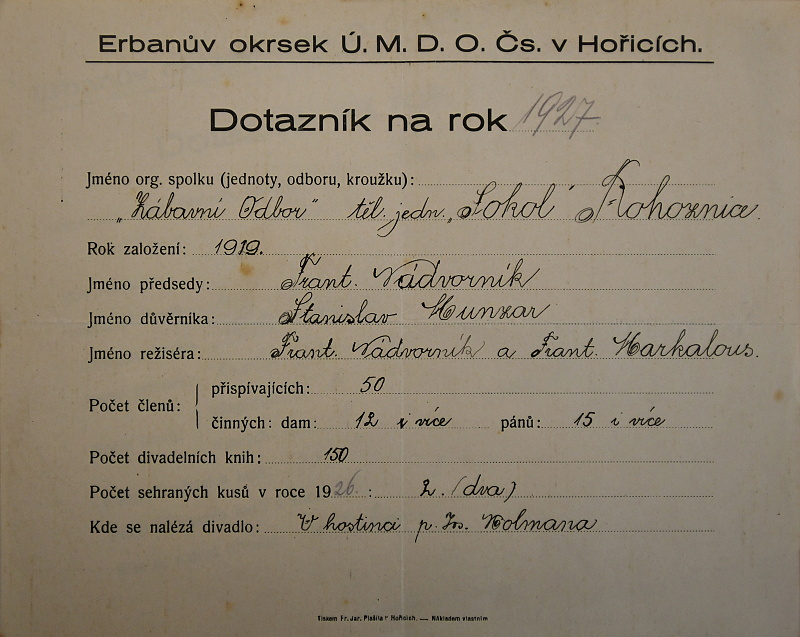 Erbanův okrsek Ú. M. D. O. Čs. v Hořicích.
Dotazník na rok 1927.
Jméno org. spolku (jednoty, odboru, kroužku):
„Zábavní Odbor" těl. jedn. „Sokol" Rohoznice.
Rok založení: 1919.
Jméno předsedy: Frant. Nádvorník
Jméno důvěrníka: Stanislav Hunzar
Jméno režiséra: Frant. Nádvorník a Frant. Markalous.
Počet členů: přispívajících: 50
činných: dam: 12 i více pánů: 15 i více
Počet divadelních knih: 150
Počet sehraných kusů v roce 1926. : 2. (dva)
Kde se nalézá divadlo: V hostinci p. Jos. Kolmana
Tiskem Fr. Jar. Plašila v Hořicích. — Nákladem vlastním